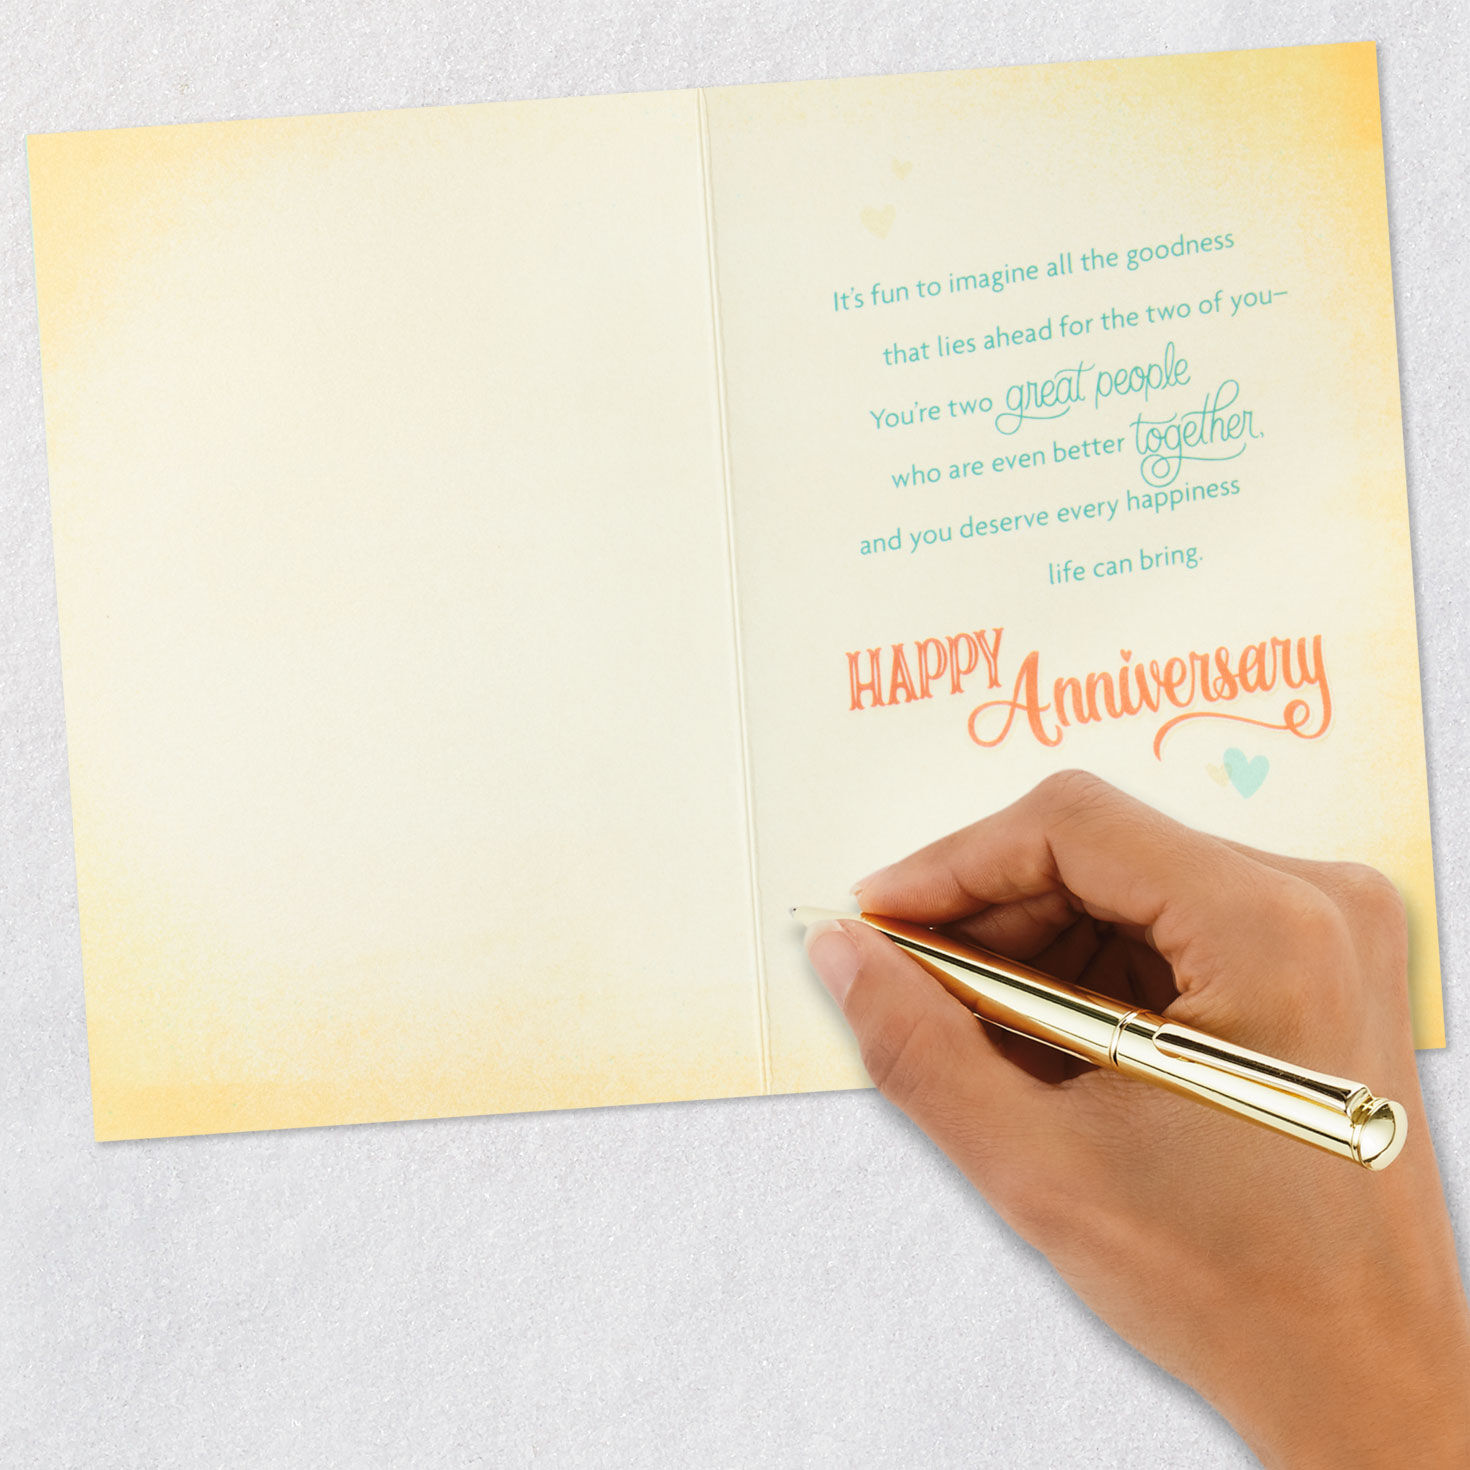 It's fun to imagine all the goodness
that lies ahead for the two of you–
You're two great people
who are even better together,
and you deserve every happiness
life can bring.
HAPPY Anniversary